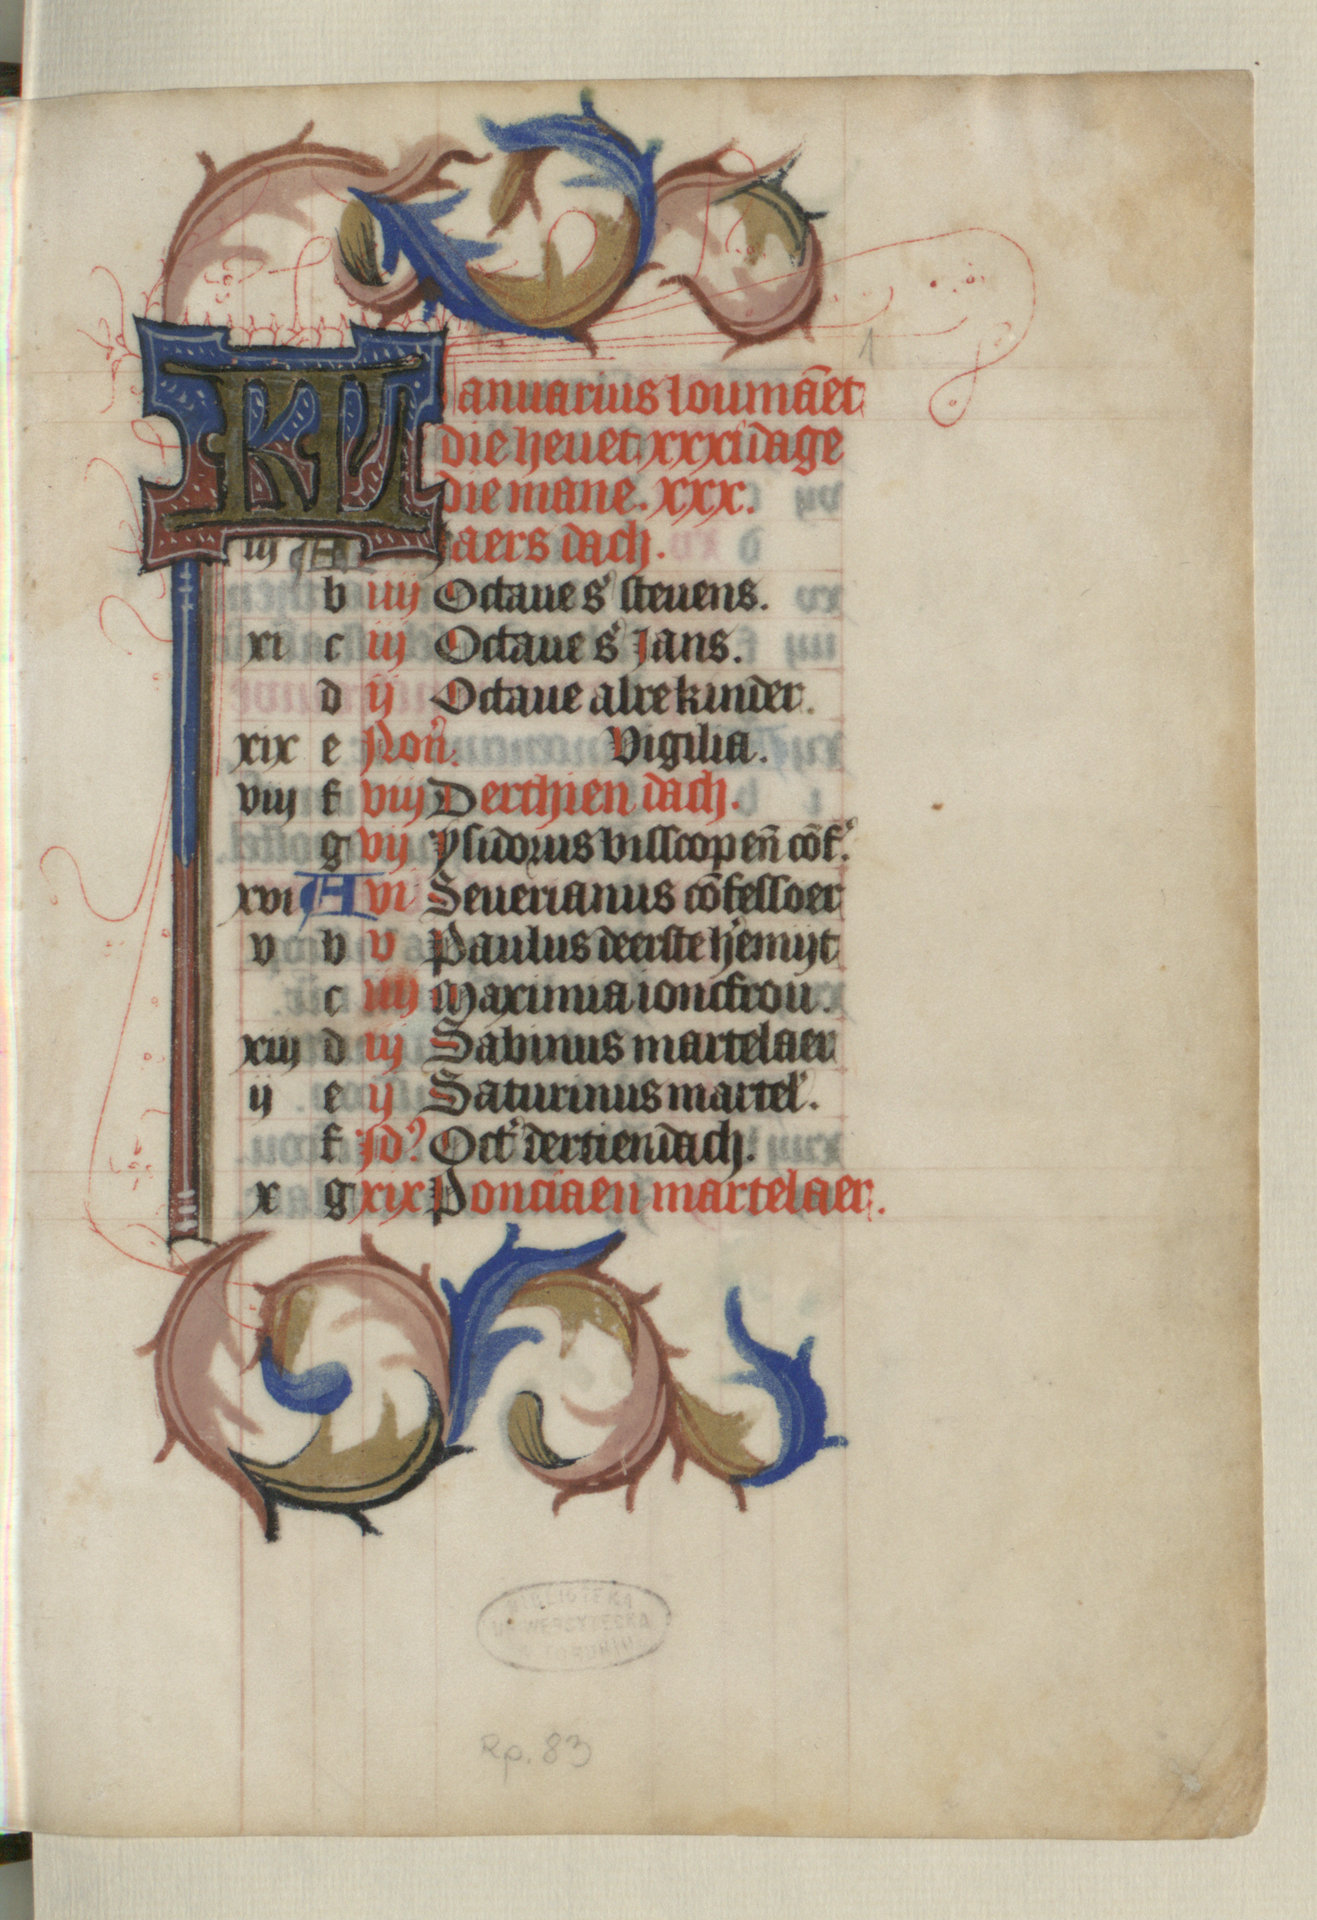 1
KL anuarius loumāet
die heuet xxxi dage
die mane. xxx.
iij A Jaers dach.
b iiij Octaue s' steuens.
xi c iij Octaue s' Jans.
d ij Octaue alre kinder.
xix e Non'. Vigilia.
viij f viij Derthien dach.
g vij Ysidorus visscop eñ cōf'.
xvi A vi Seuerianus cōfessoer
v b v Paulus deerste h'emijt
c iiij Maximia ioncfrou.
xiij d iij Sabinus martelaer
ij e ij Saturinus martel'.
f Id' Oct' dertiendach.
x g xix Ponciaen martelaer.
BIBLIOTEKA
UNIWERSYTECKA
W TORUNIU
Rp. 83